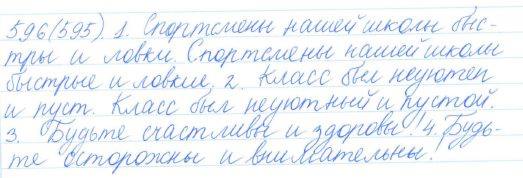 596(595). 1. Спортсмены нашей школы быс-
тры и ловки. Спортсмены нашей школы
быстрые и ловкие. 2. Класс был неуютен
и пуст. Класс был неуютный и пустой.
3. Будьте счастливы и здоровы! 4. Будь-
те осторожны и внимательны!